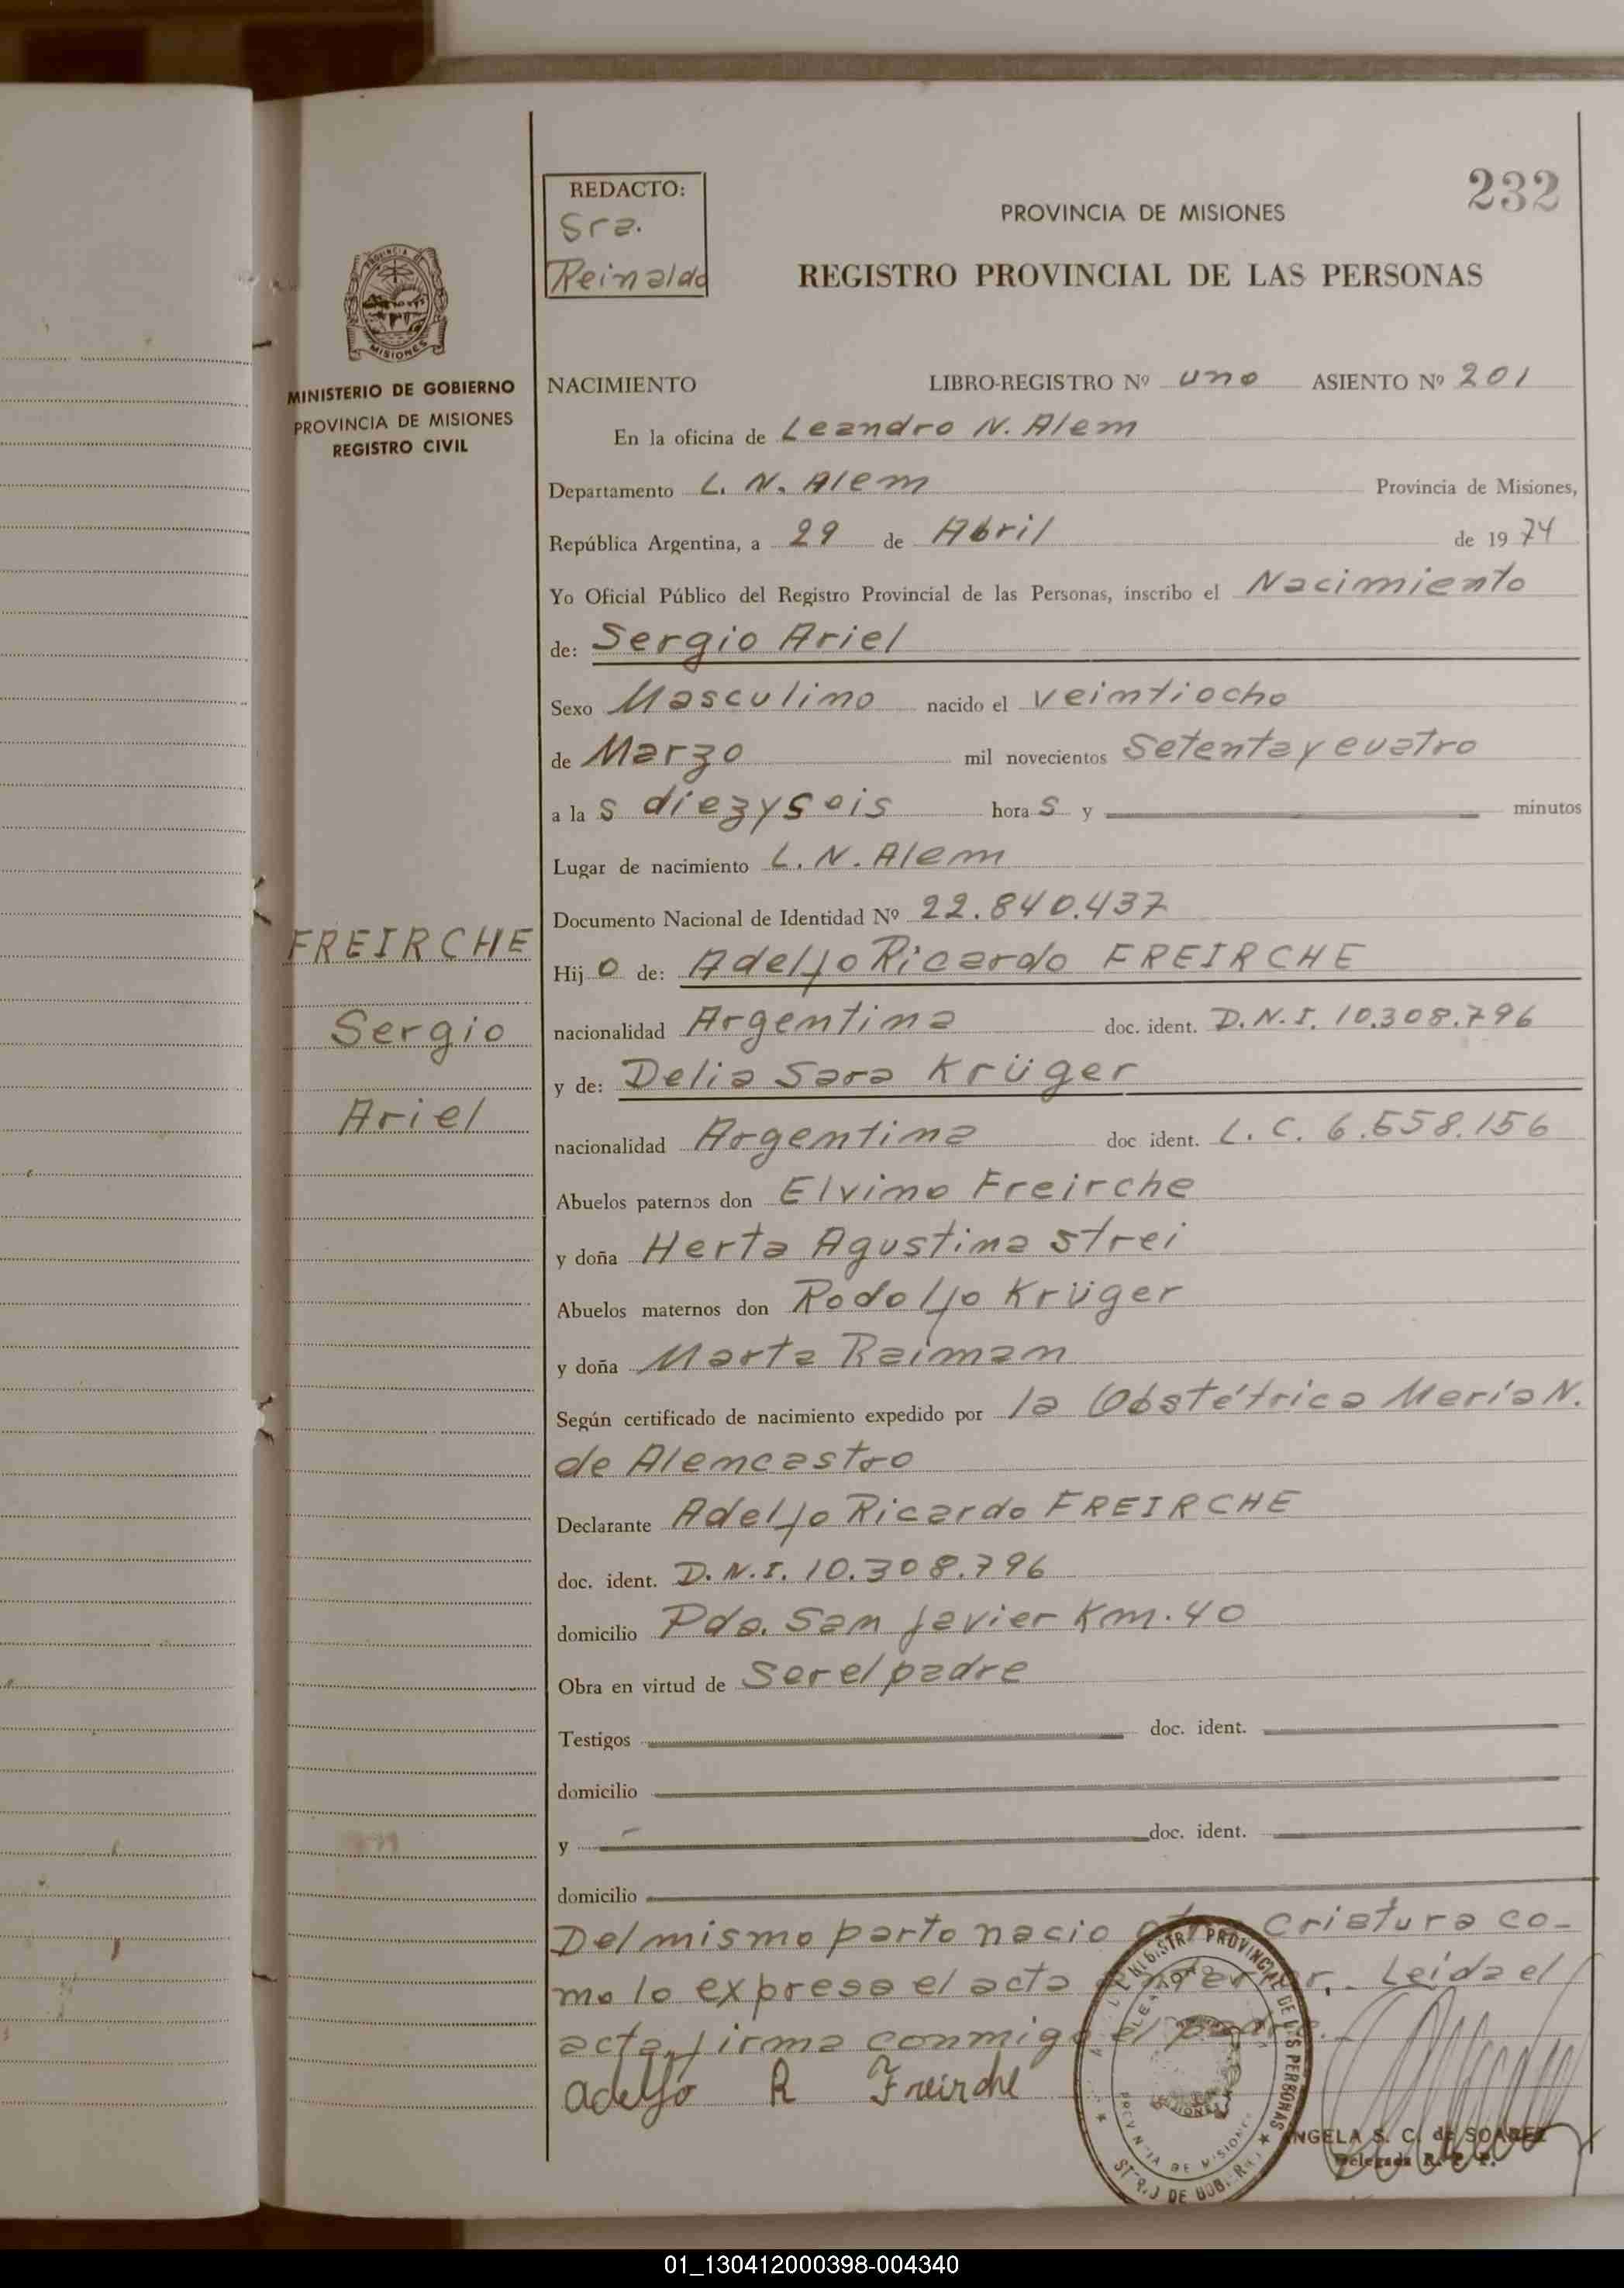 232
REDACTO:
Sra.
Reinaldo
PROVINCIA DE MISIONES
REGISTRO PROVINCIAL DE LAS PERSONAS
PROVINCIA DE
MISIONES
MINISTERIO DE GOBIERNO
PROVINCIA DE MISIONES
REGISTRO CIVIL
NACIMIENTO LIBRO-REGISTRO Nº uno ASIENTO Nº 201
En la oficina de Leandro N. Alem
Departamento L. N. Alem Provincia de Misiones,
República Argentina, a 29 de Abril de 1974
Yo Oficial Público del Registro Provincial de las Personas, inscribo el Nacimiento
de: Sergio Ariel
Sexo Masculino nacido el veintiocho
de Marzo mil novecientos Setenta y cuatro
a las diez y seis horas y minutos
Lugar de nacimiento L. N. Alem
Documento Nacional de Identidad Nº 22.840.437
FREIRCHE
Sergio
Ariel
Hijo de: Adelfo Ricardo FREIRCHE
nacionalidad Argentina doc. ident. D.N.I. 10.308.796
y de: Delia Sara Krüger
nacionalidad Argentina doc ident. L. C. 6.558.156
Abuelos paternos don Elvino Freirche
y doña Herta Agustina Strei
Abuelos maternos don Rodolfo Krüger
y doña Marta Raiman
Según certificado de nacimiento expedido por la Obstétrica María N.
de Alencastro
Declarante Adelfo Ricardo FREIRCHE
doc. ident. D.N.I. 10.308.796
domicilio Pda. San Javier Km. 40
Obra en virtud de Ser el padre
Testigos doc. ident.
domicilio
y doc. ident.
domicilio
Del mismo parto nacio otra Criatura co-
mo lo expresa el acta anterior. Leida el
acta, firma conmigo el padre.-
Adelfo R Freirche
PROVINCIAL DE LAS PERSONAS
PROVINCIA DE MISIONES
ANGELA S. C. de SOAREZ
Delegada R. P. P.
01_130412000398-004340